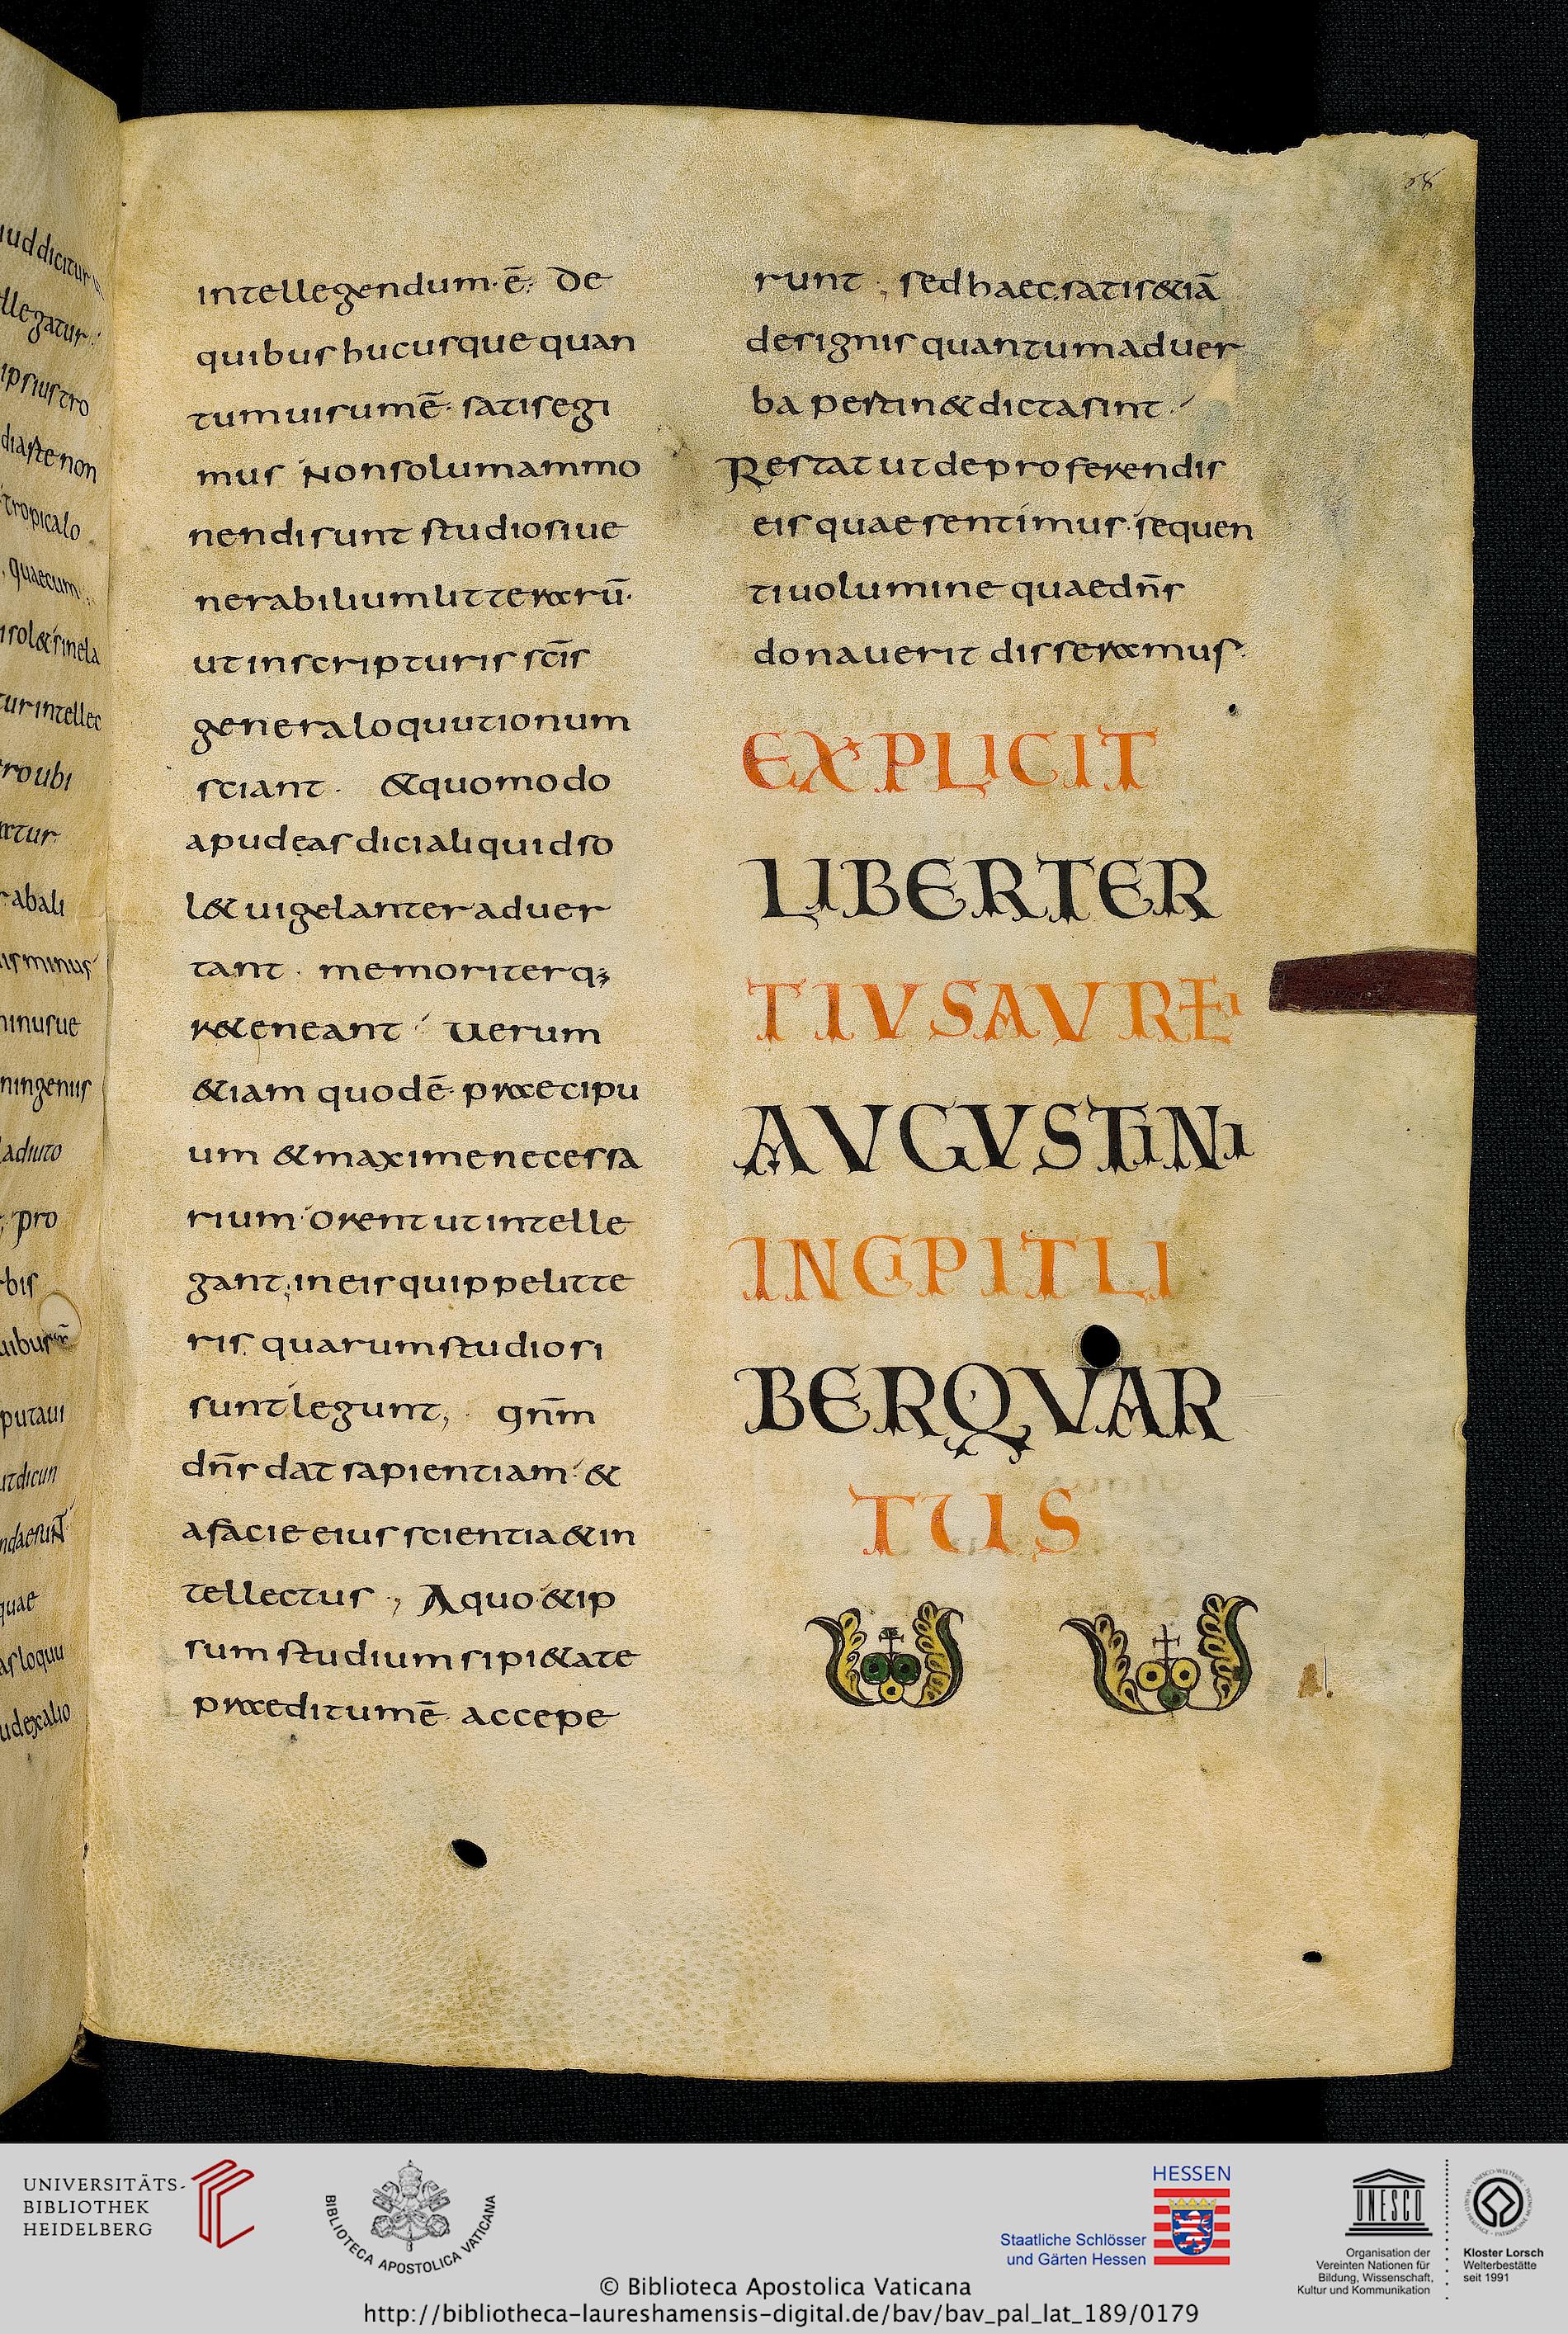 iuddicitur
llegatur
ipsiustro
diastenon
tropicalo
quaecum
isol&sinela
turintellec
roubi
atur
rabali
isminus
ninusue
ningeniis
adiuto
pro
rbis
uibus
putaui
utdicun
ndaesunt
quae
asloquu
udexalio
68
intellegendum·ē· De
quibus hucusque quan
tumuisumē· satisegi
mus Nonsolumammo
nendisunt studiosiue
nerabiliumlitterarū·
utinscripturis scīs
generaloquutionum
sciant · &quomodo
apudeas dicialiquidso
l& uigelanteraduer
tant · memoriterq;
r&eneant · Uerum
&iam quodē· praecipu
um &maximenecessa
rium·orent utintelle
gant;ineis quippelitte
ris quarumstudiosi
sunt legunt, qnm̄
dn̄s dat sapientiam· &
afacie eius scientia&in
tellectus , Aquo &ip
sum studiumsipi&ate
praeditumē· accepe
runt , sedhaec satis&iā
designis quantumaduer
ba pertin& dictasint ·
Restat utdeproferendis
eis quaesentimus·sequen
tiuolumine quaedn̄s
donauerit disseramus·
EXPLICIT
LIBERTER
TIVSAVRELI
AVGVSTINI
INCIPITLI
BERQVAR
TUS
UNIVERSITÄTS-
BIBLIOTHEK
HEIDELBERG
BIBLIOTECA APOSTOLICA VATICANA
HESSEN
Staatliche Schlösser
und Gärten Hessen
UNESCO
Organisation der
Vereinten Nationen für
Bildung, Wissenschaft,
Kultur und Kommunikation
Kloster Lorsch
Welterbestätte
seit 1991
© Biblioteca Apostolica Vaticana
http://bibliotheca-laureshamensis-digital.de/bav/bav_pal_lat_189/0179